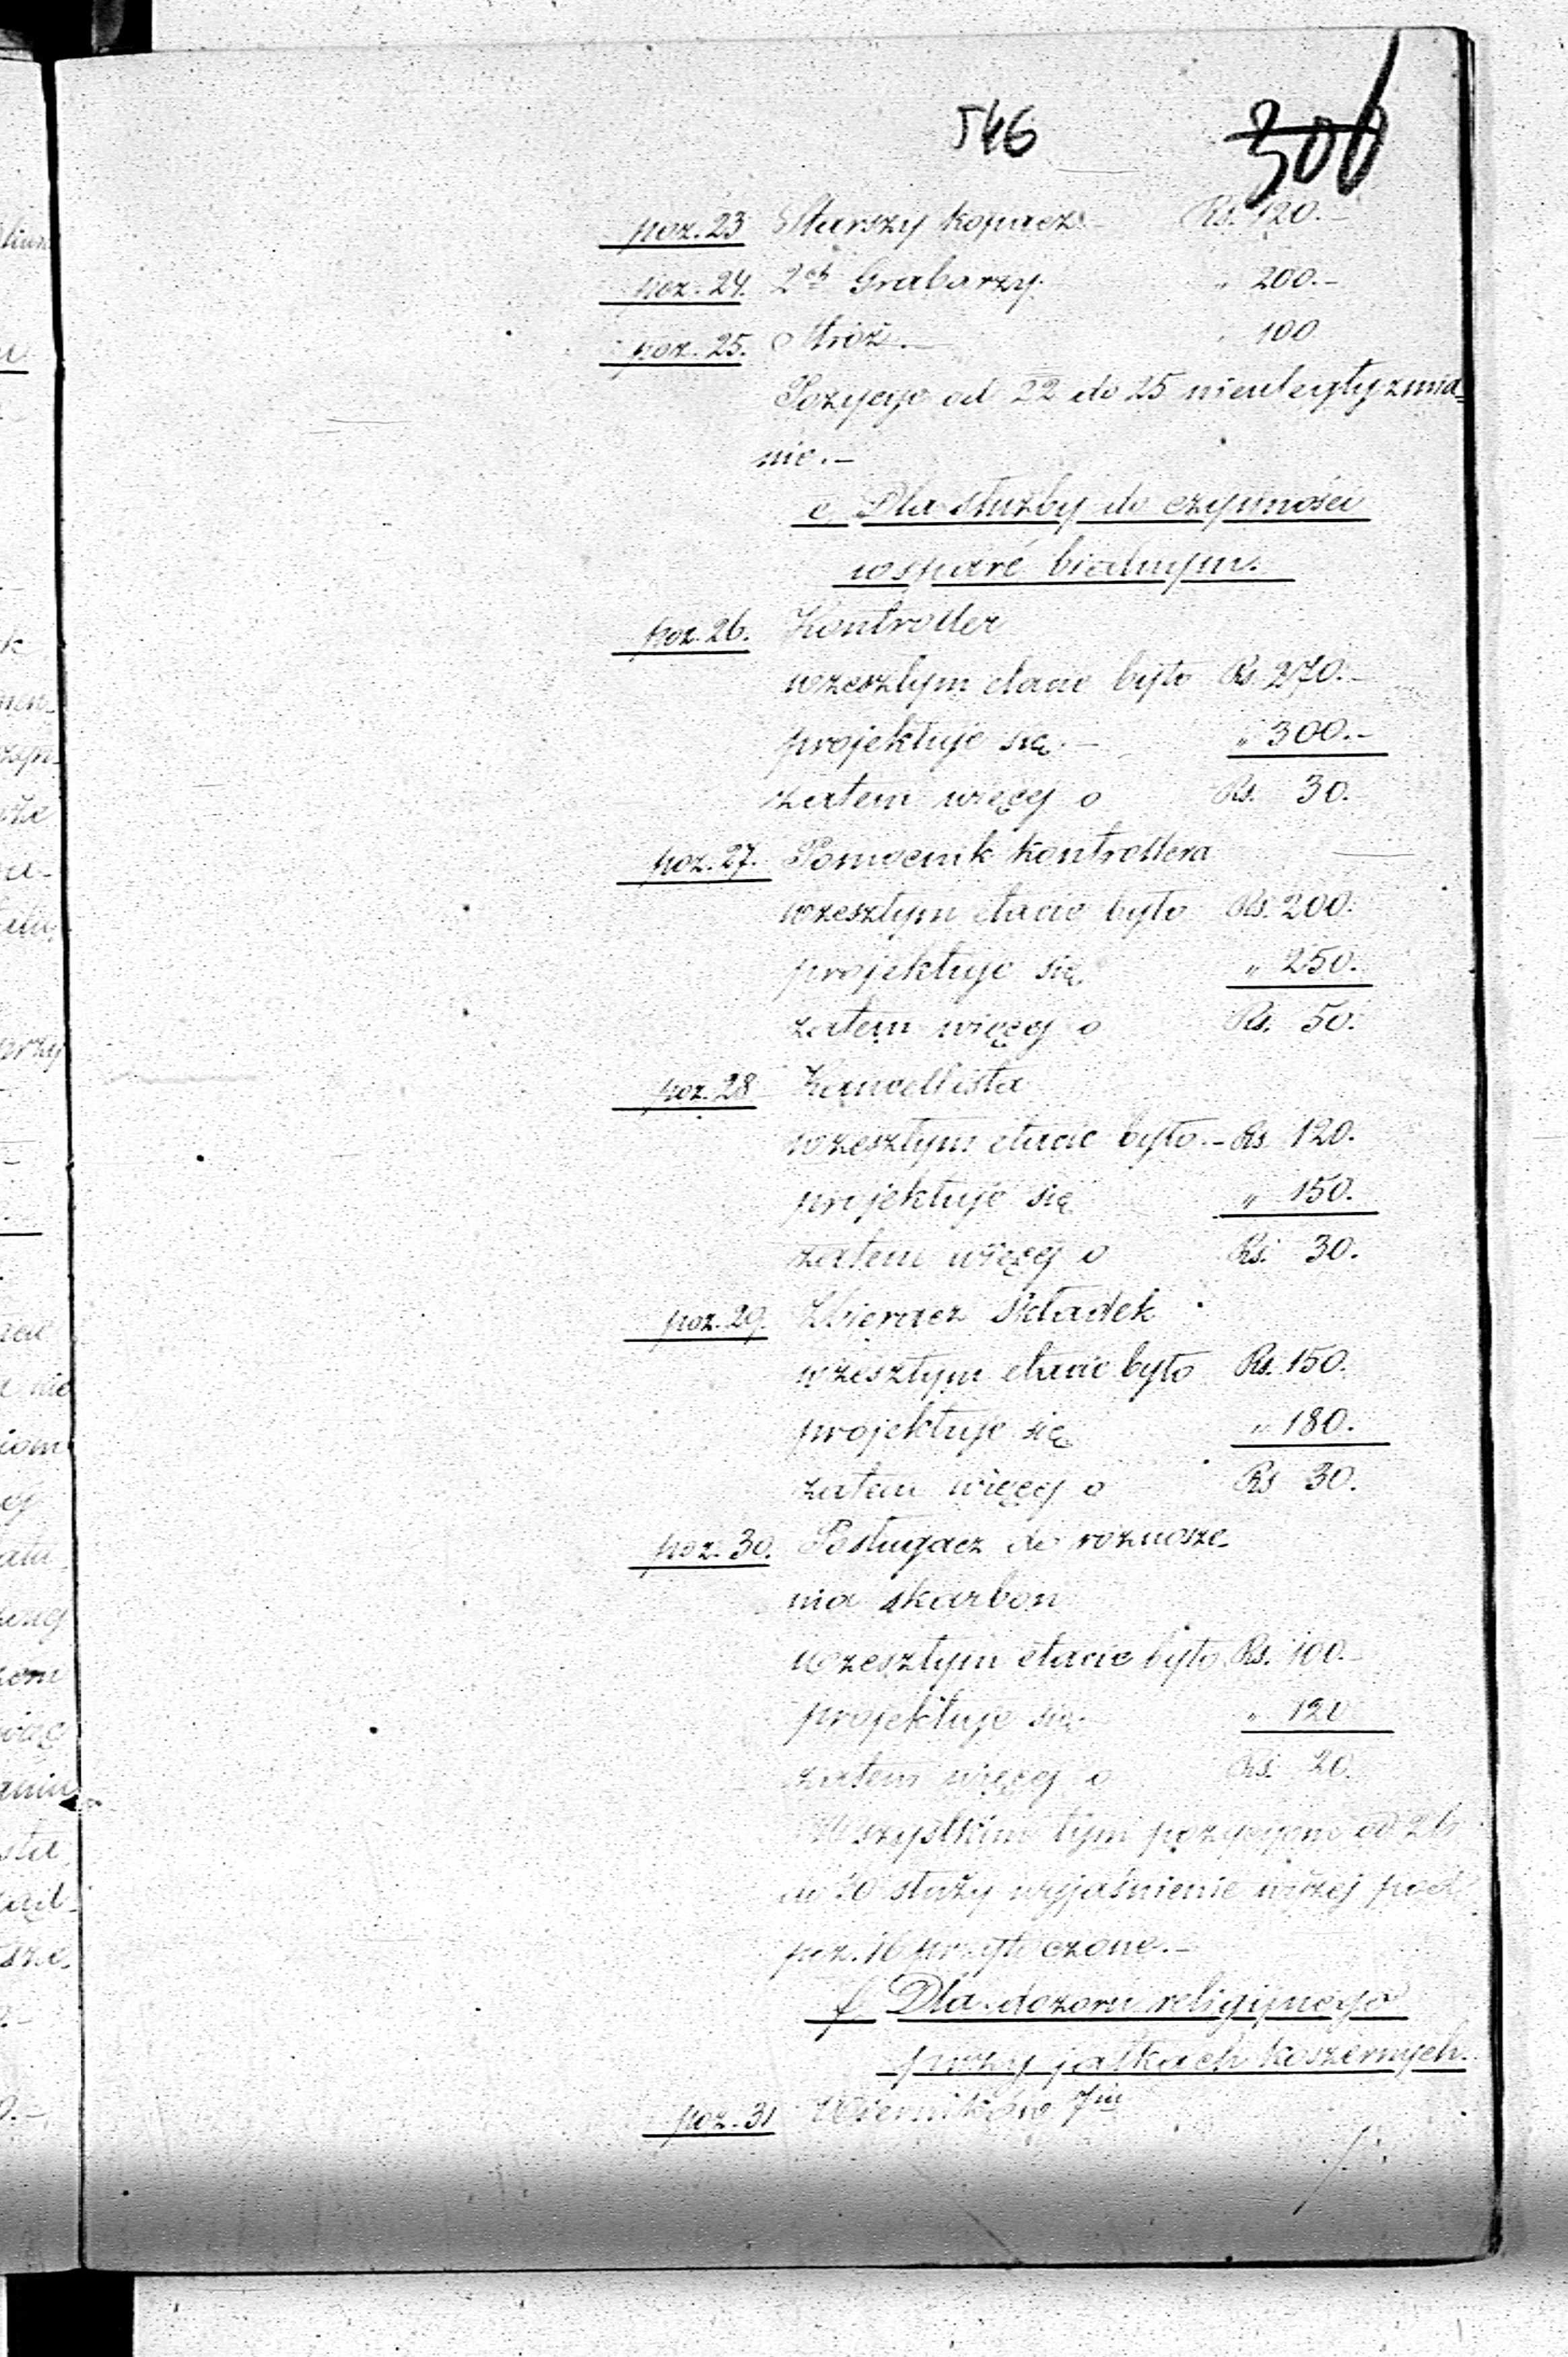 546 306
poz. 23 Starszy kopacz.— Rs. 120.—
poz. 24. 2ch Grabarzy. „ 200.—
poz. 25. Stróż.— „ 100
Pozycye od 22 do 25 nieuległy zmia=
nie.—
e. Dla służby do czynności
wsparć biednym.
poz. 26. Kontroller
w zeszłym etacie było Rs. 270.—
projektuje się.— „ 300.—
zatem więcej o Rs. 30.
poz. 27. Pomocnik kontrollera
w zeszłym etacie było Rs. 200.
projektuje się „ 250.
zatem więcej o Rs. 50.
poz. 28 Kancellista
w zeszłym etacie było.— Rs 120.
projektuje się „ 150.
zatem więcej o Rs. 30.
poz. 29. Zbieracz składek
w zeszłym etacie było Rs. 150.
projektuje się „ 180.
zatem więcej o Rs 30.
poz. 30. Posługacz do roznosze-
nia skarbon
w zeszłym etacie było Rs. 100.—
projektuje się.— „ 120
zatem więcej o Rs. 20.
Wszystkim tym pozycyom od 26
do 30 służy wyjaśnienie wyżej pod
poz. 16 przytoczone.—
f. Dla dozoru religijnego
przy jatkach koszernych.
poz. 31 Wierników 7miu